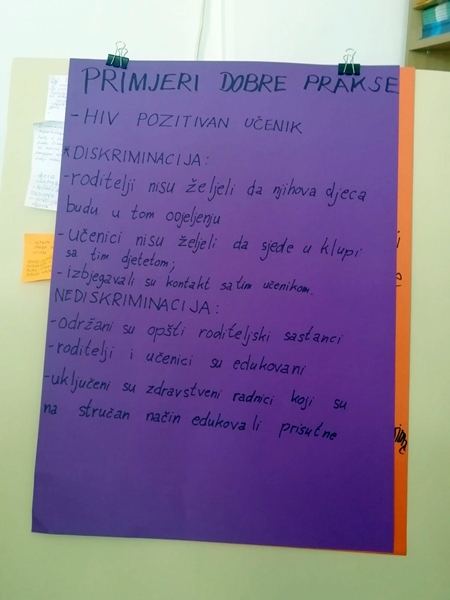 PRIMJERI DOBRE PRAKSE
- HIV POZITIVAN UČENIK
* DISKRIMINACIJA:
- roditelji nisu željeli da njihova djeca
budu u tom odjeljenju
- učenici nisu željeli da sjede u klupi
sa tim djetetom;
- izbjegavali su kontakt sa tim učenikom.
NEDISKRIMINACIJA:
- održani su opšti roditeljski sastanci
- roditelji i učenici su edukovani
- uključeni su zdravstveni radnici koji su
na stručan način edukovali prisutne